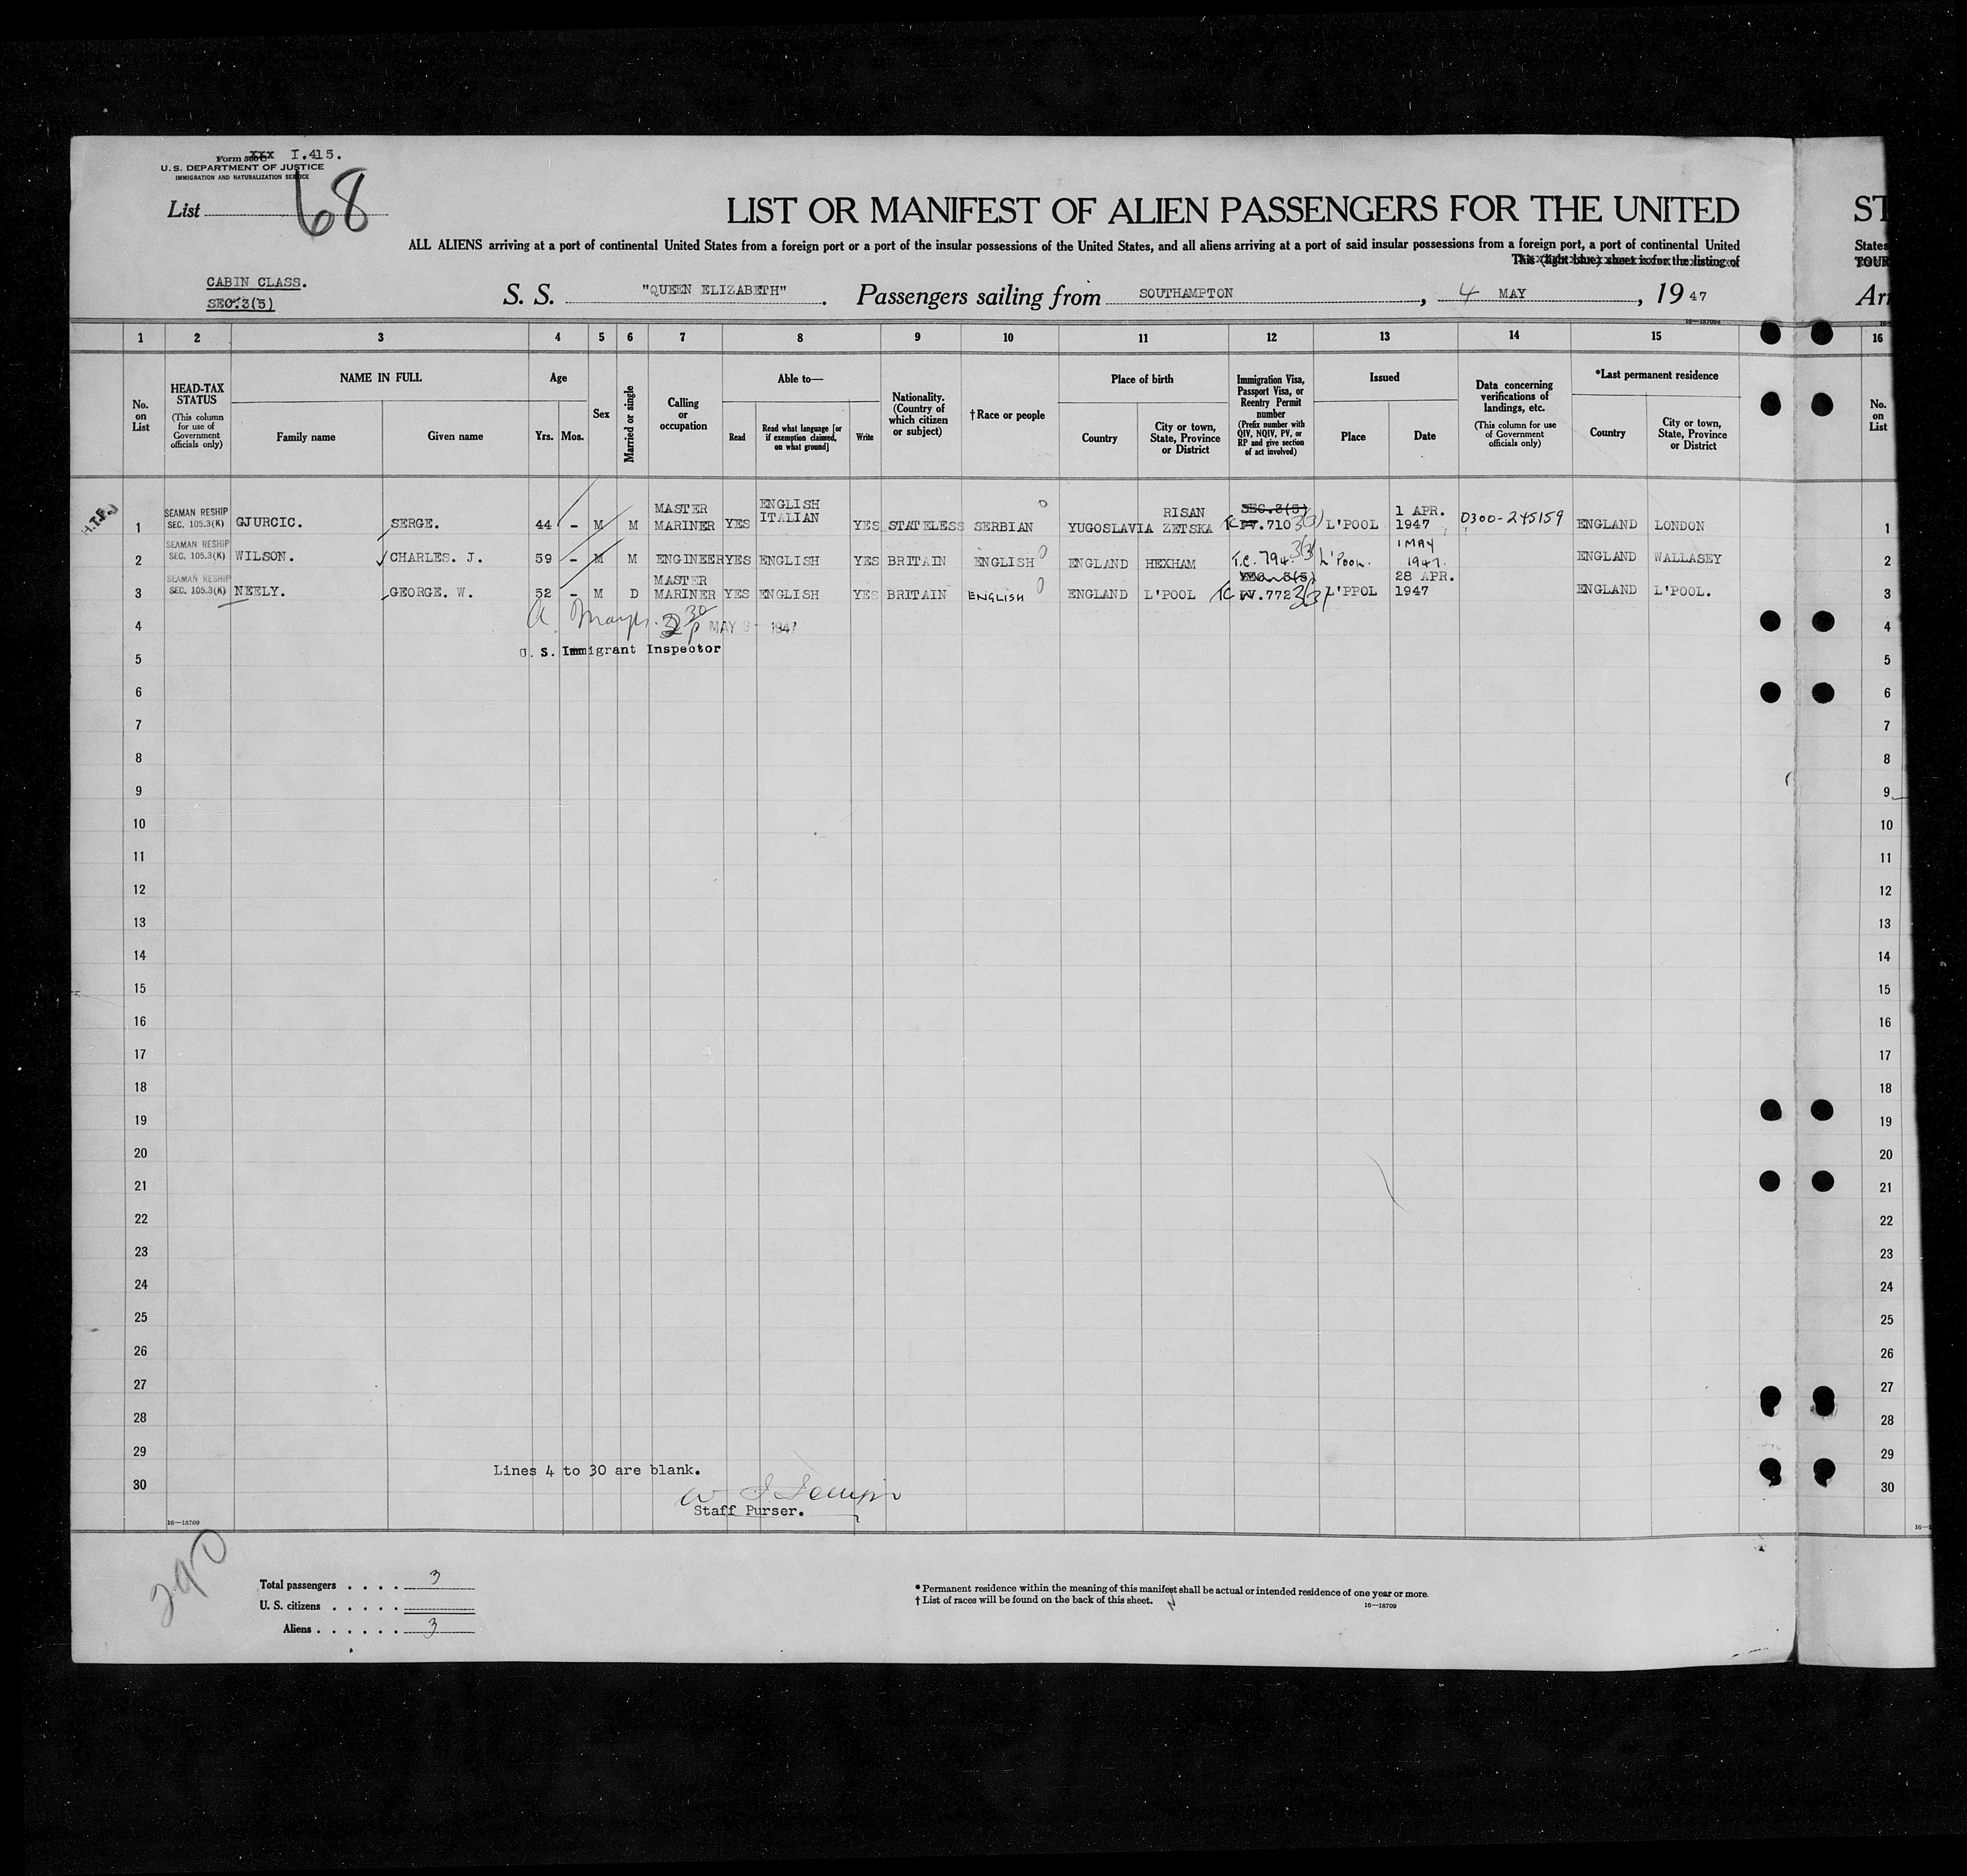 Form 500 C XXX I.415.
U. S. DEPARTMENT OF JUSTICE
IMMIGRATION AND NATURALIZATION SERVICE
List 68
LIST OR MANIFEST OF ALIEN PASSENGERS FOR THE UNITED ST
ALL ALIENS arriving at a port of continental United States from a foreign port or a port of the insular possessions of the United States, and all aliens arriving at a port of said insular possessions from a foreign port, a port of continental United States
This (light blue) sheet is for the listing of TOUR
CABIN CLASS.
SEC.3(5)
S. S. "QUEEN ELIZABETH". Passengers sailing from SOUTHAMPTON, 4 MAY, 19 47 Arr
1 2 3 4 5 6 7 8 9 10 11 12 13 14 15 16
No. on List
HEAD-TAX STATUS (This column for use of Government officials only)
NAME IN FULL
Family name Given name
Age
Yrs. Mos.
Sex
Married or single
Calling or occupation
Able to—
Read
Read what language [or if exemption claimed, on what ground]
Write
Nationality. (Country of which citizen or subject)
†Race or people
Place of birth
Country
City or town, State, Province or District
Immigration Visa, Passport Visa, or Reentry Permit number (Prefix number with QIV, NQIV, PV, or RP and give section of act involved)
Issued
Place Date
Data concerning verifications of landings, etc. (This column for use of Government officials only)
*Last permanent residence
Country
City or town, State, Province or District
No. on List
1 SEAMAN RESHIP SEC. 105.3(K) GJURCIC. SERGE. 44 - M M MASTER MARINER YES ENGLISH ITALIAN YES STATELESS SERBIAN YUGOSLAVIA RISAN ZETSKA SEC.3(5) TC PV.710 3(3) L'POOL 1 APR. 1947 0300-245159 ENGLAND LONDON 1
2 SEAMAN RESHIP SEC. 105.3(K) WILSON. CHARLES. J. 59 - M M ENGINEER YES ENGLISH YES BRITAIN ENGLISH ENGLAND HEXHAM T.C. 794. 3(3) L'Pool. 1 MAY 1947. ENGLAND WALLASEY 2
3 SEAMAN RESHIP SEC. 105.3(K) NEELY. GEORGE. W. 52 - M D MASTER MARINER YES ENGLISH YES BRITAIN ENGLISH ENGLAND L'POOL SEC. 3(5) TC PV.772 3(3) L'PPOL 28 APR. 1947 ENGLAND L'POOL. 3
4 MAY 9 - 1947 4
5 U. S. Immigrant Inspector 5
6 6
7 7
8 8
9 9
10 10
11 11
12 12
13 13
14 14
15 15
16 16
17 17
18 18
19 19
20 20
21 21
22 22
23 23
24 24
25 25
26 26
27 27
28 28
29 29
Lines 4 to 30 are blank.
30 30
Staff Purser.
16—18709
290
Total passengers . . . . 3
U. S. citizens . . . . .
Aliens . . . . . . 3
* Permanent residence within the meaning of this manifest shall be actual or intended residence of one year or more.
† List of races will be found on the back of this sheet.
16—18709